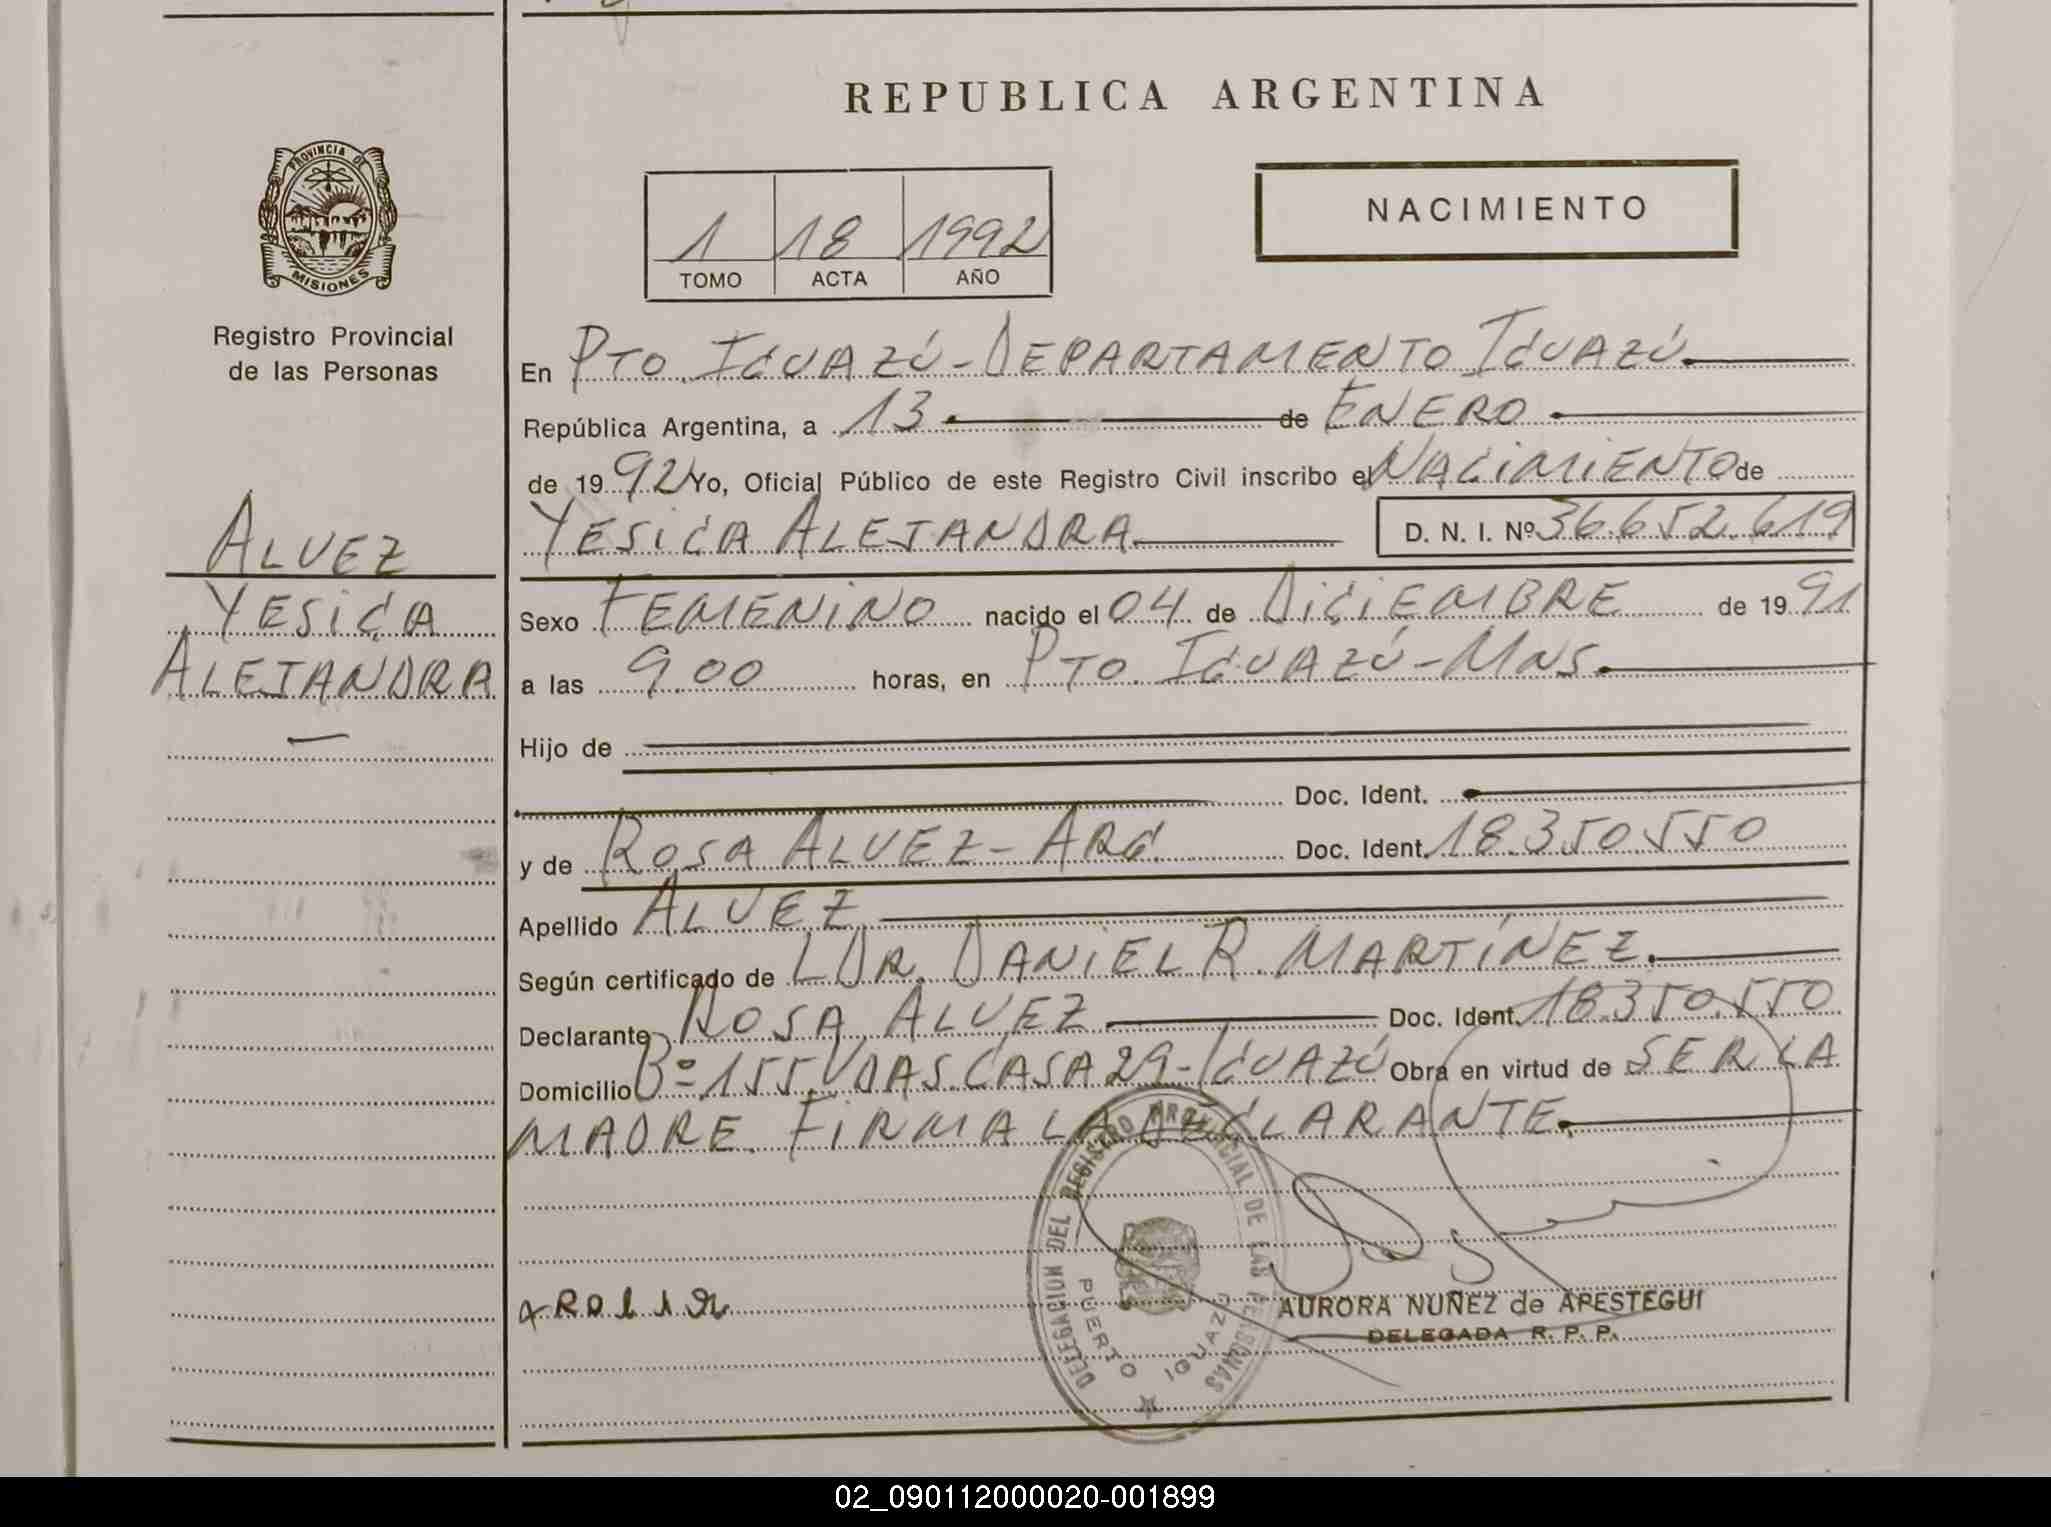 REPUBLICA ARGENTINA
PROVINCIA DE
MISIONES
Registro Provincial
de las Personas
1 18 1992
TOMO ACTA AÑO
NACIMIENTO
En PTO. IGUAZÚ - DEPARTAMENTO IGUAZÚ
República Argentina, a 13 de ENERO
de 1992 Yo, Oficial Público de este Registro Civil inscribo el NACIMIENTO de
YESICA ALEJANDRA D. N. I. Nº 36.652.619
ALVEZ
YESICA
ALEJANDRA
Sexo FEMENINO nacido el 04 de DICIEMBRE de 1991
a las 9.00 horas, en PTO. IGUAZÚ - MNS.
Hijo de
Doc. Ident.
y de ROSA ALVEZ - ARG. Doc. Ident. 18.350.550
Apellido ALVEZ
Según certificado de DR. DANIEL R. MARTÍNEZ.
Declarante ROSA ALVEZ Doc. Ident. 18.350.550
Domicilio Bº 155 VDAS. CASA 29 - IGUAZÚ Obra en virtud de SER LA
MADRE. FIRMA LA DECLARANTE.
DELEGACION DEL REGISTRO PROVINCIAL DE LAS PERSONAS
PUERTO IGUAZU
AURORA NUÑEZ de APESTEGUI
DELEGADA R. P. P.
02_090112000020-001899